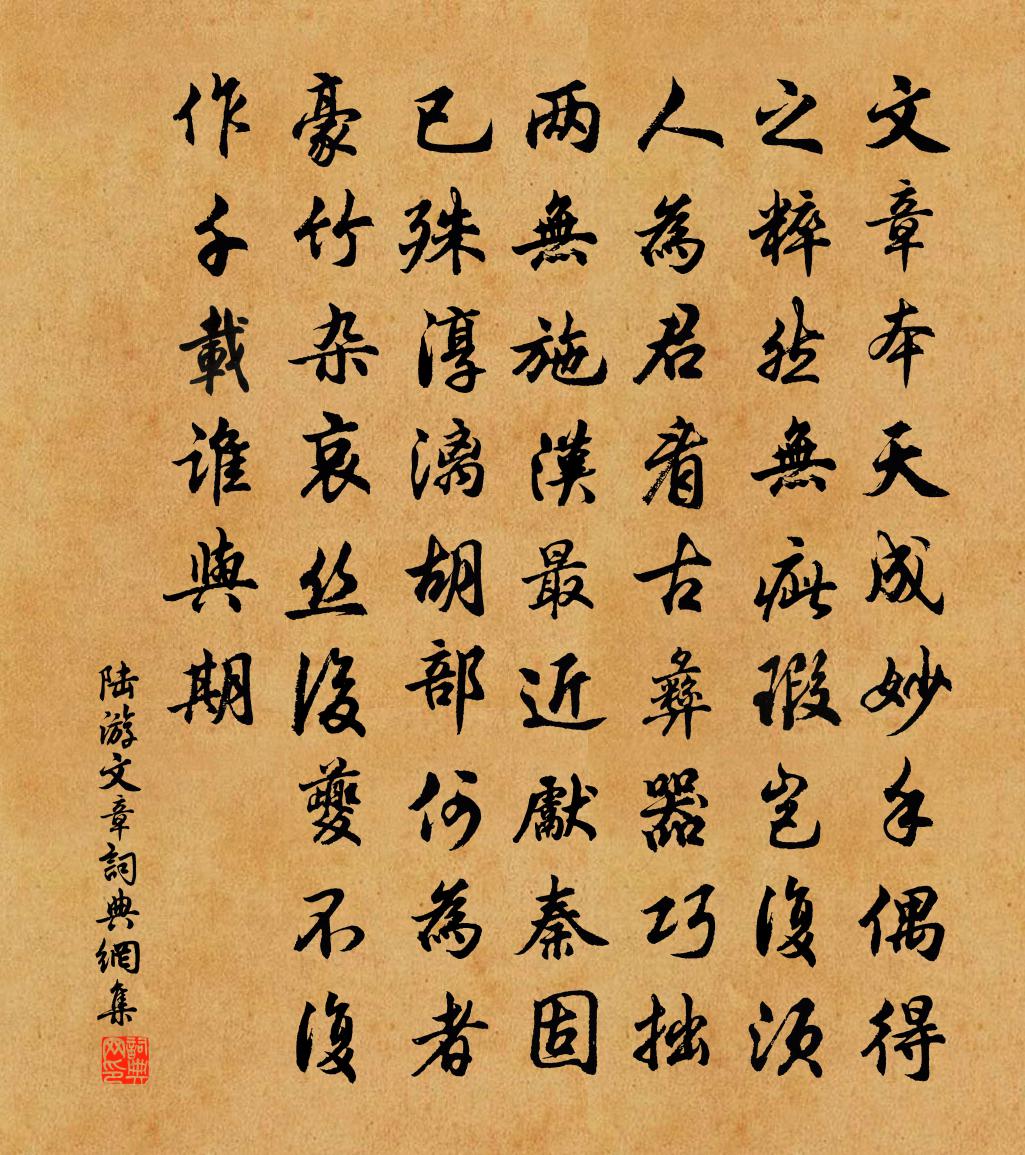 文章本天成妙手偶得
之粹然無疵瑕豈復須
人為君看古彝器巧拙
两無施漢最近獻秦固
已殊淳漓胡部何為者
豪竹杂哀丝後夔不復
作千載誰與期
陆游文章詞典網集
詞典网印